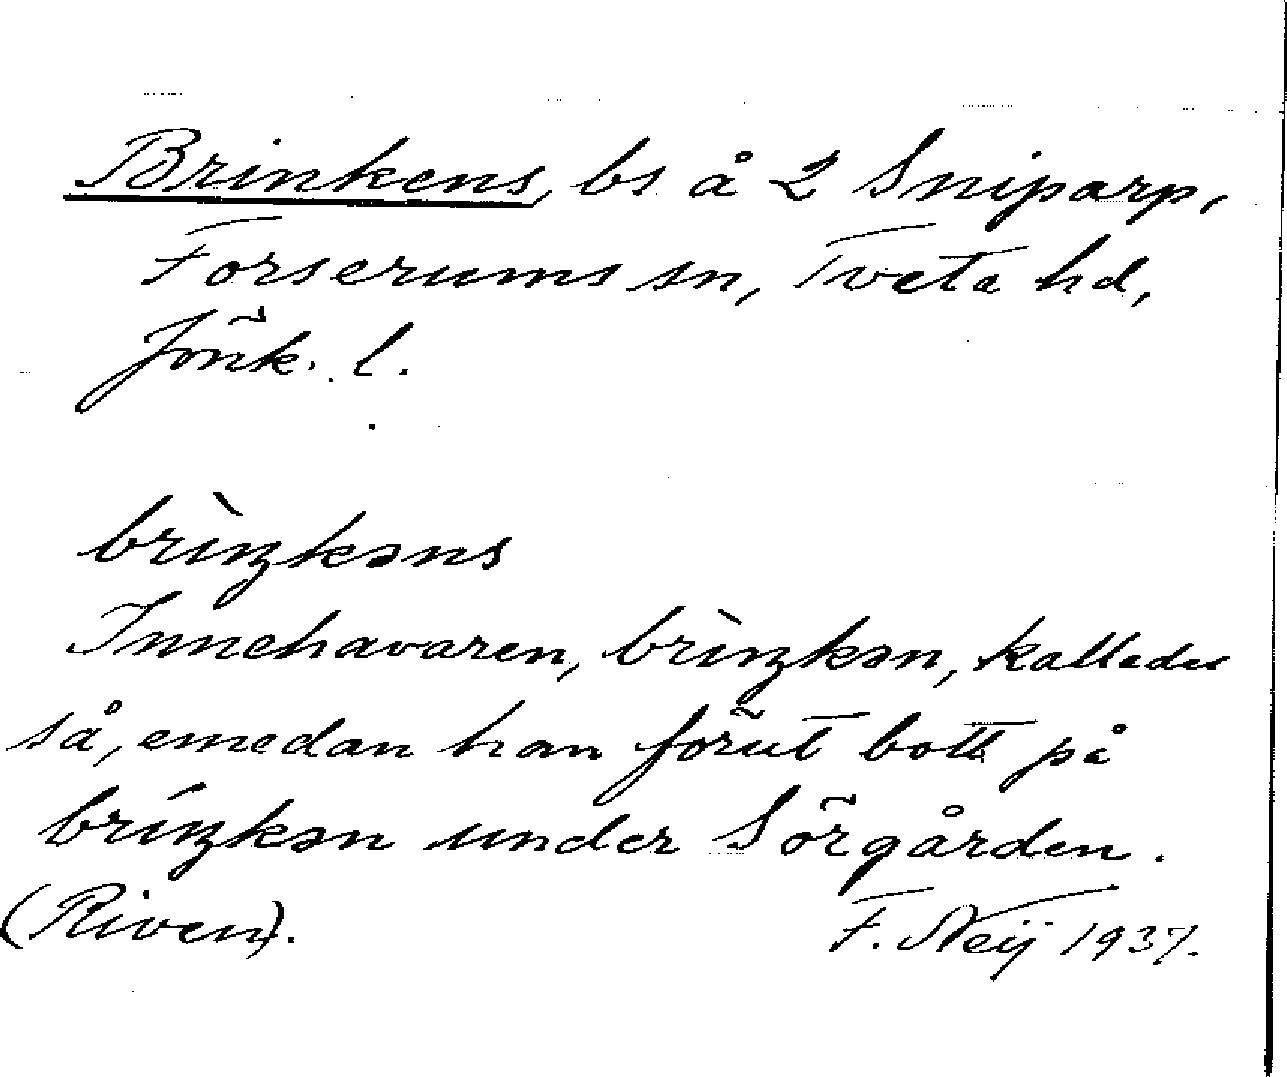 Brinkens, bs å 2 Sniparp,
Forserums sn, Tveta hd,
Jönk. l.
brìŋkəns
Innehavaren, brìŋkən, kallades
så, emedan han förut bott på
bríŋkən under Sörgården.
(Riven).
F. Neij 1937.